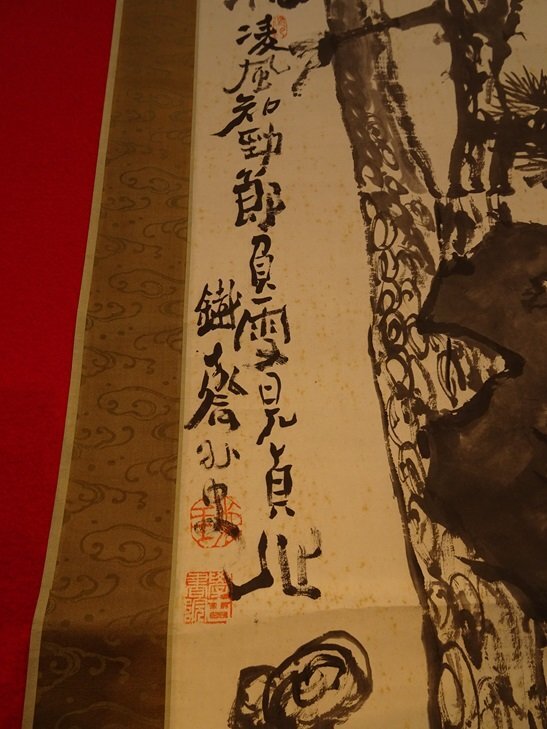 凌風知勁節負雪見貞心
鐵齋外史